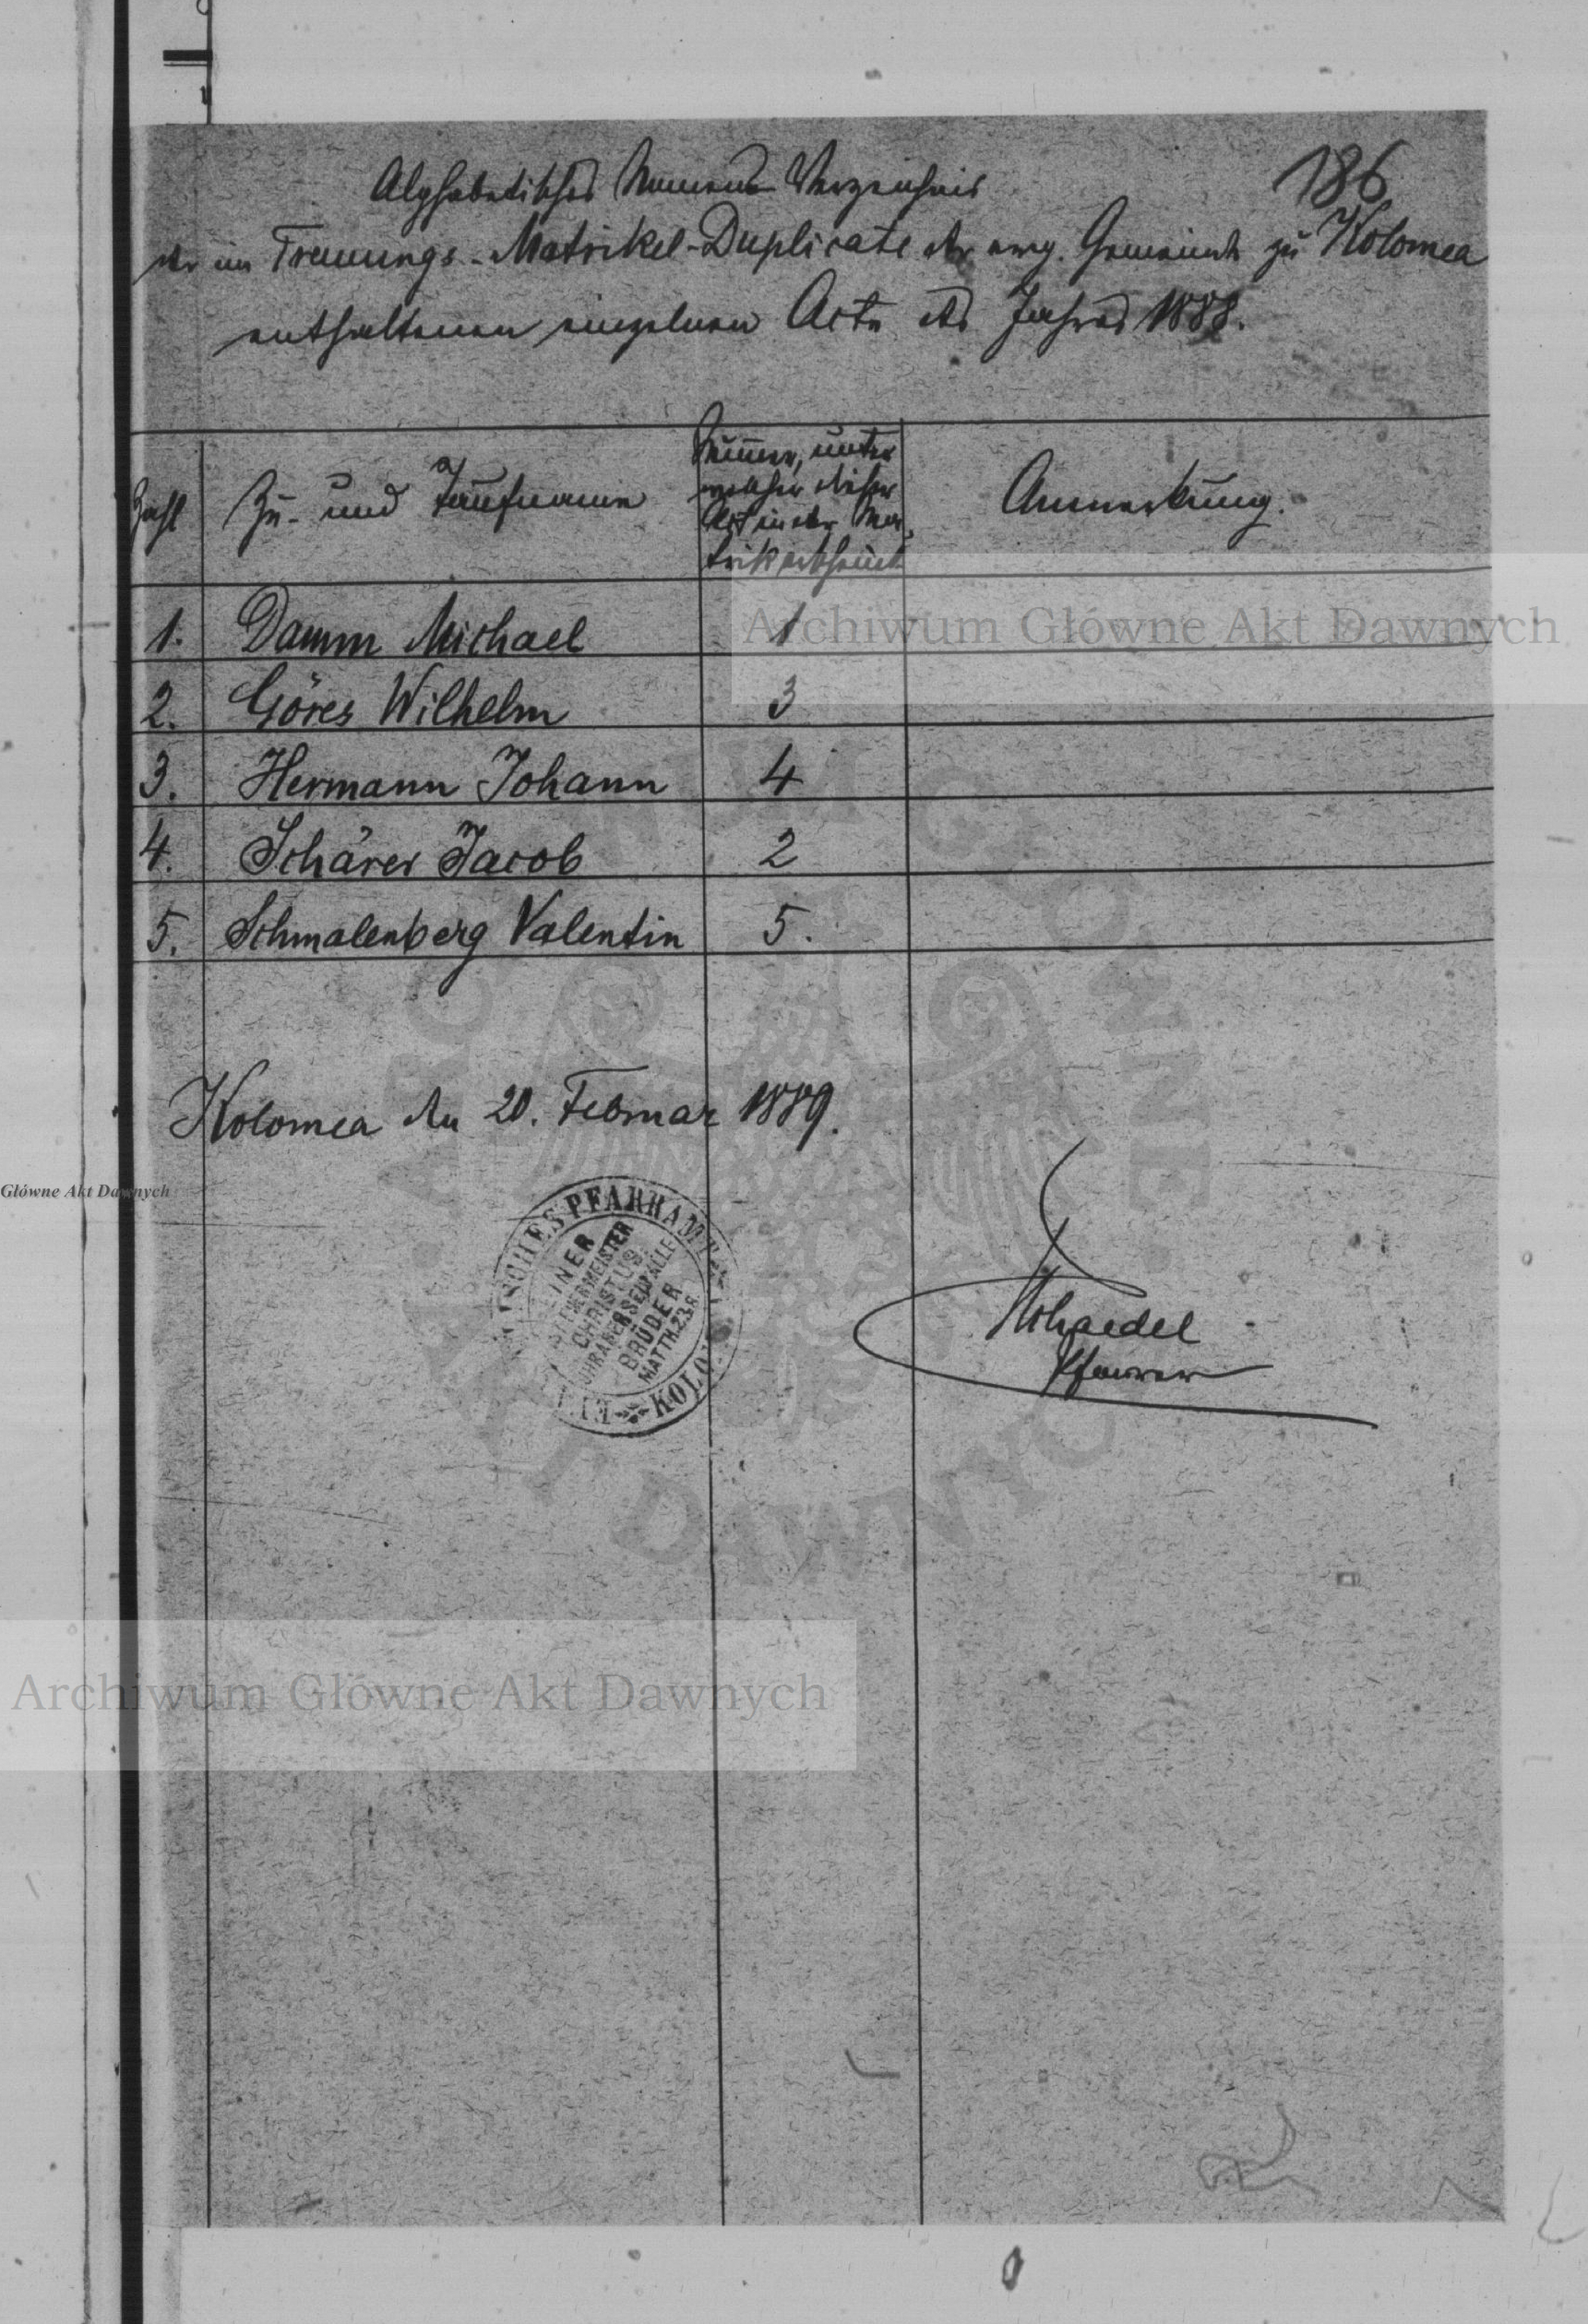 186
Alphabetisches Namens-Verzeichnis
der im Trauungs-Matrikel-Duplicate der evg. Gemeinde zu Kolomea
enthaltenen einzelnen Acte des Jahres 1888.
Zahl
Zu- und Taufname
Numer, unter
welcher dieser
Act in der Ma-
trik erscheint
Anmerkung.
1. Damm Michael 1
2. Göres Wilhelm 3
3. Hermann Johann 4
4. Schärer Jacob 2
5. Schmalenberg Valentin 5.
Kolomea den 20. Februar 1889.
PFARRAMT
EINER
IST EUER MEISTER
CHRISTUS
IHR ABER SEID ALLE
BRÜDER
MATTH. 23.8.
Pfarrer
Archiwum Główne Akt Dawnych
Główne Akt Dawnych
Archiwum Główne Akt Dawnych